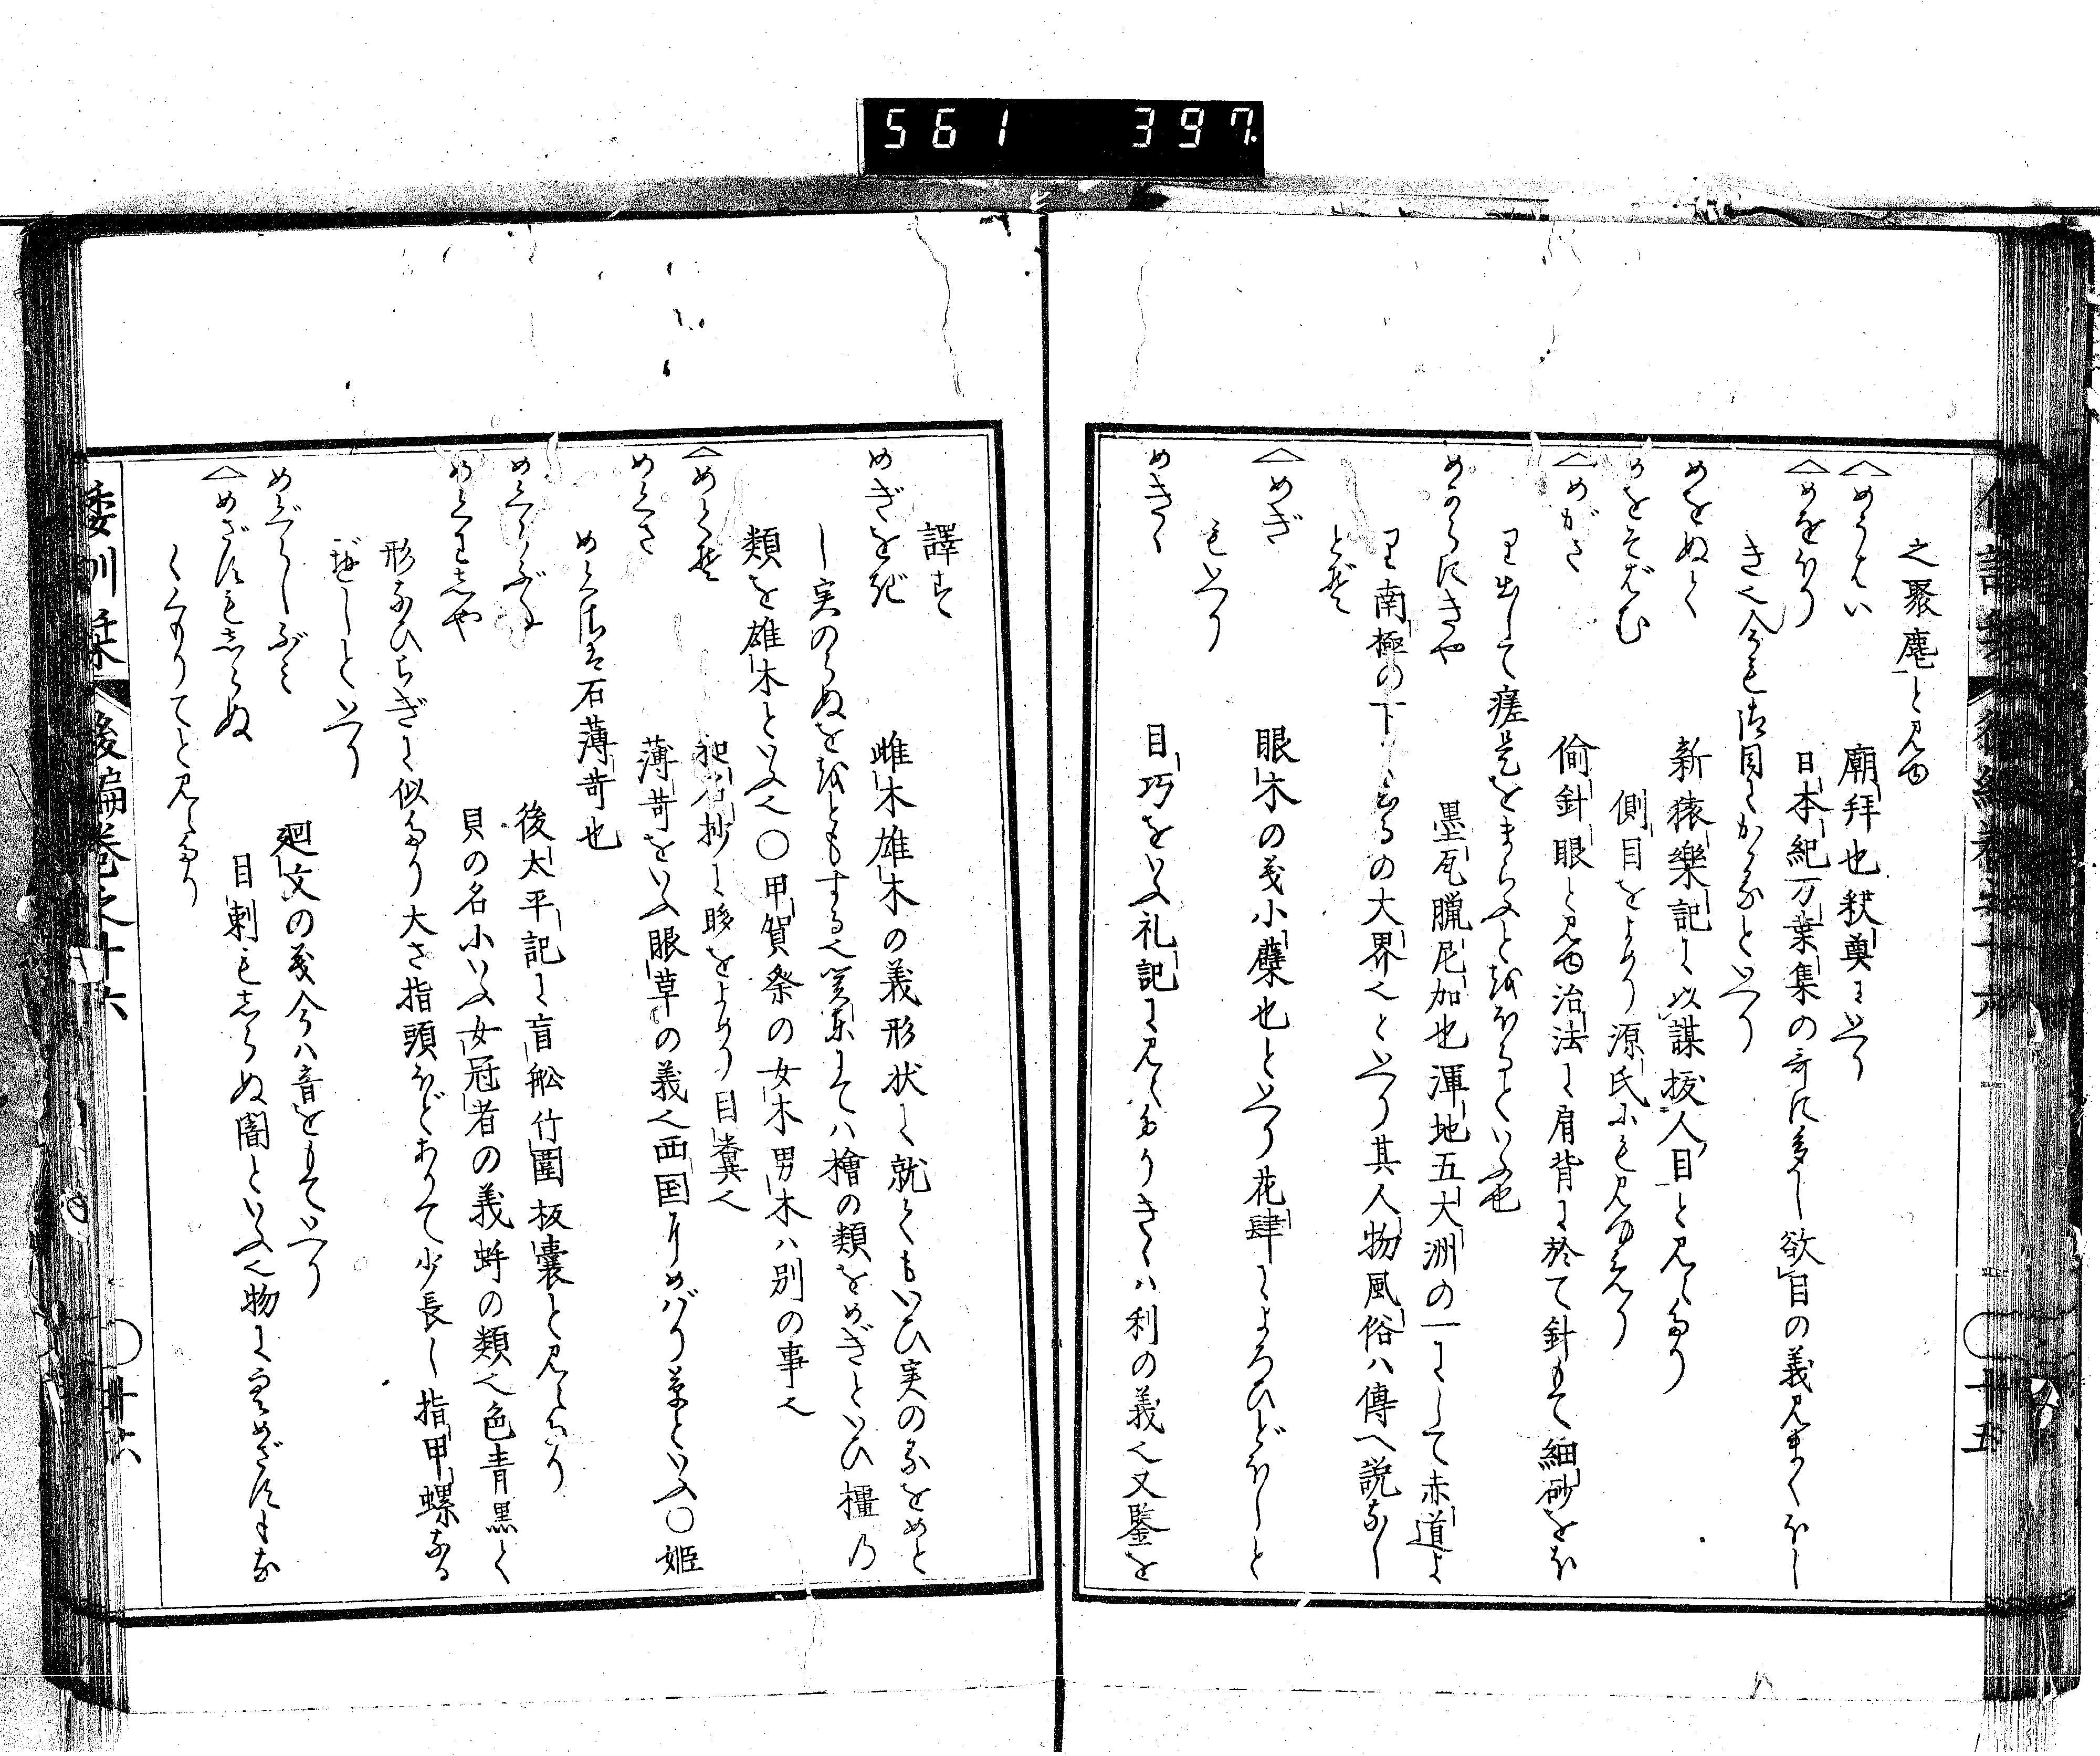 561 397
之聚麀と見ゆ
めうはい 廟拜也釈奠にいへり
めをほり 日本紀万葉集の哥に多し欲目の義見まくほし
き也今も御目にかゝるといへり
めをぬく 新猿樂記に以謀抜人目と見えたり
めをそばむ 側目をよめり源氏にも見ゆ
めがさ 偷針眼と見ゆ治法に肩背に於て針もて細砂をほ
り出して瘥是をまらふといふ也
めがらにきや 墨瓦臘尼加也渾地五大洲の一にして赤道よ
り南極の下にあるの大界也といへり其人物風俗ハ傳へ説なし
とぞ
めぎ 眼木の義小蘗也といへり花肆によろひどほしと
もいへり
めきゝ 目巧をいふ礼記に見えたりきゝハ利の義也又鑒を
譯せり
めぎをぎ 雌木雄木の義形状に就てもいひ実のなるをめと
し実のらぬををともする也関東にてハ檜の類をめぎといひ橿乃
類を雄木といふ也〇甲賀祭の女木男木ハ別の事也
めくそ 昶石抄に眵をよめり目糞也
めくさ 薄苛をいふ眼草の義也西国にめばり草といふ〇姫
めくさは石薄苛也
めくらぶね 後太平記に盲舩竹圍板囊と見えたり
めくわじや 貝の名小いふ女冠者の義蚌の類也色青黒く
形なひらぎに似たり大さ指頭ほどありて少長し指甲螺なる
べしといへり
めぐらしぶみ 廻文の義今ハ音をもていへり
めざすもしらぬ 目刺もしらぬ闇といふ也物に書めざすもな
くくもりてと見えたり
倭訓栞 後編巻之十六 〇 廿六
後編巻之十六 〇 廿五